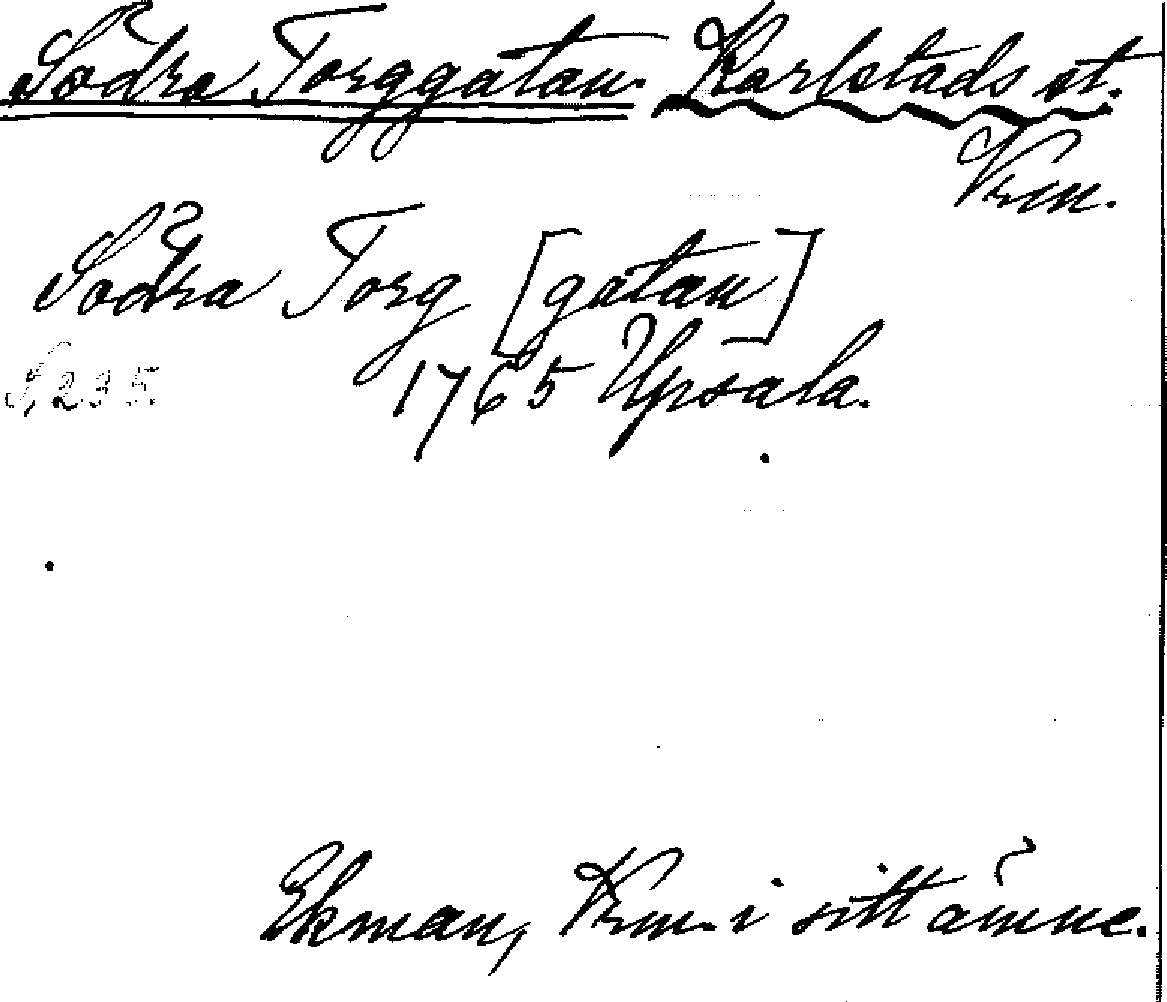 Södra Torggatan. Karlstads st.
Vrm.
Södra Torg [gatan]
S, 235. 1765 Upsala.
Ekman, Vrm. i sitt ämne.